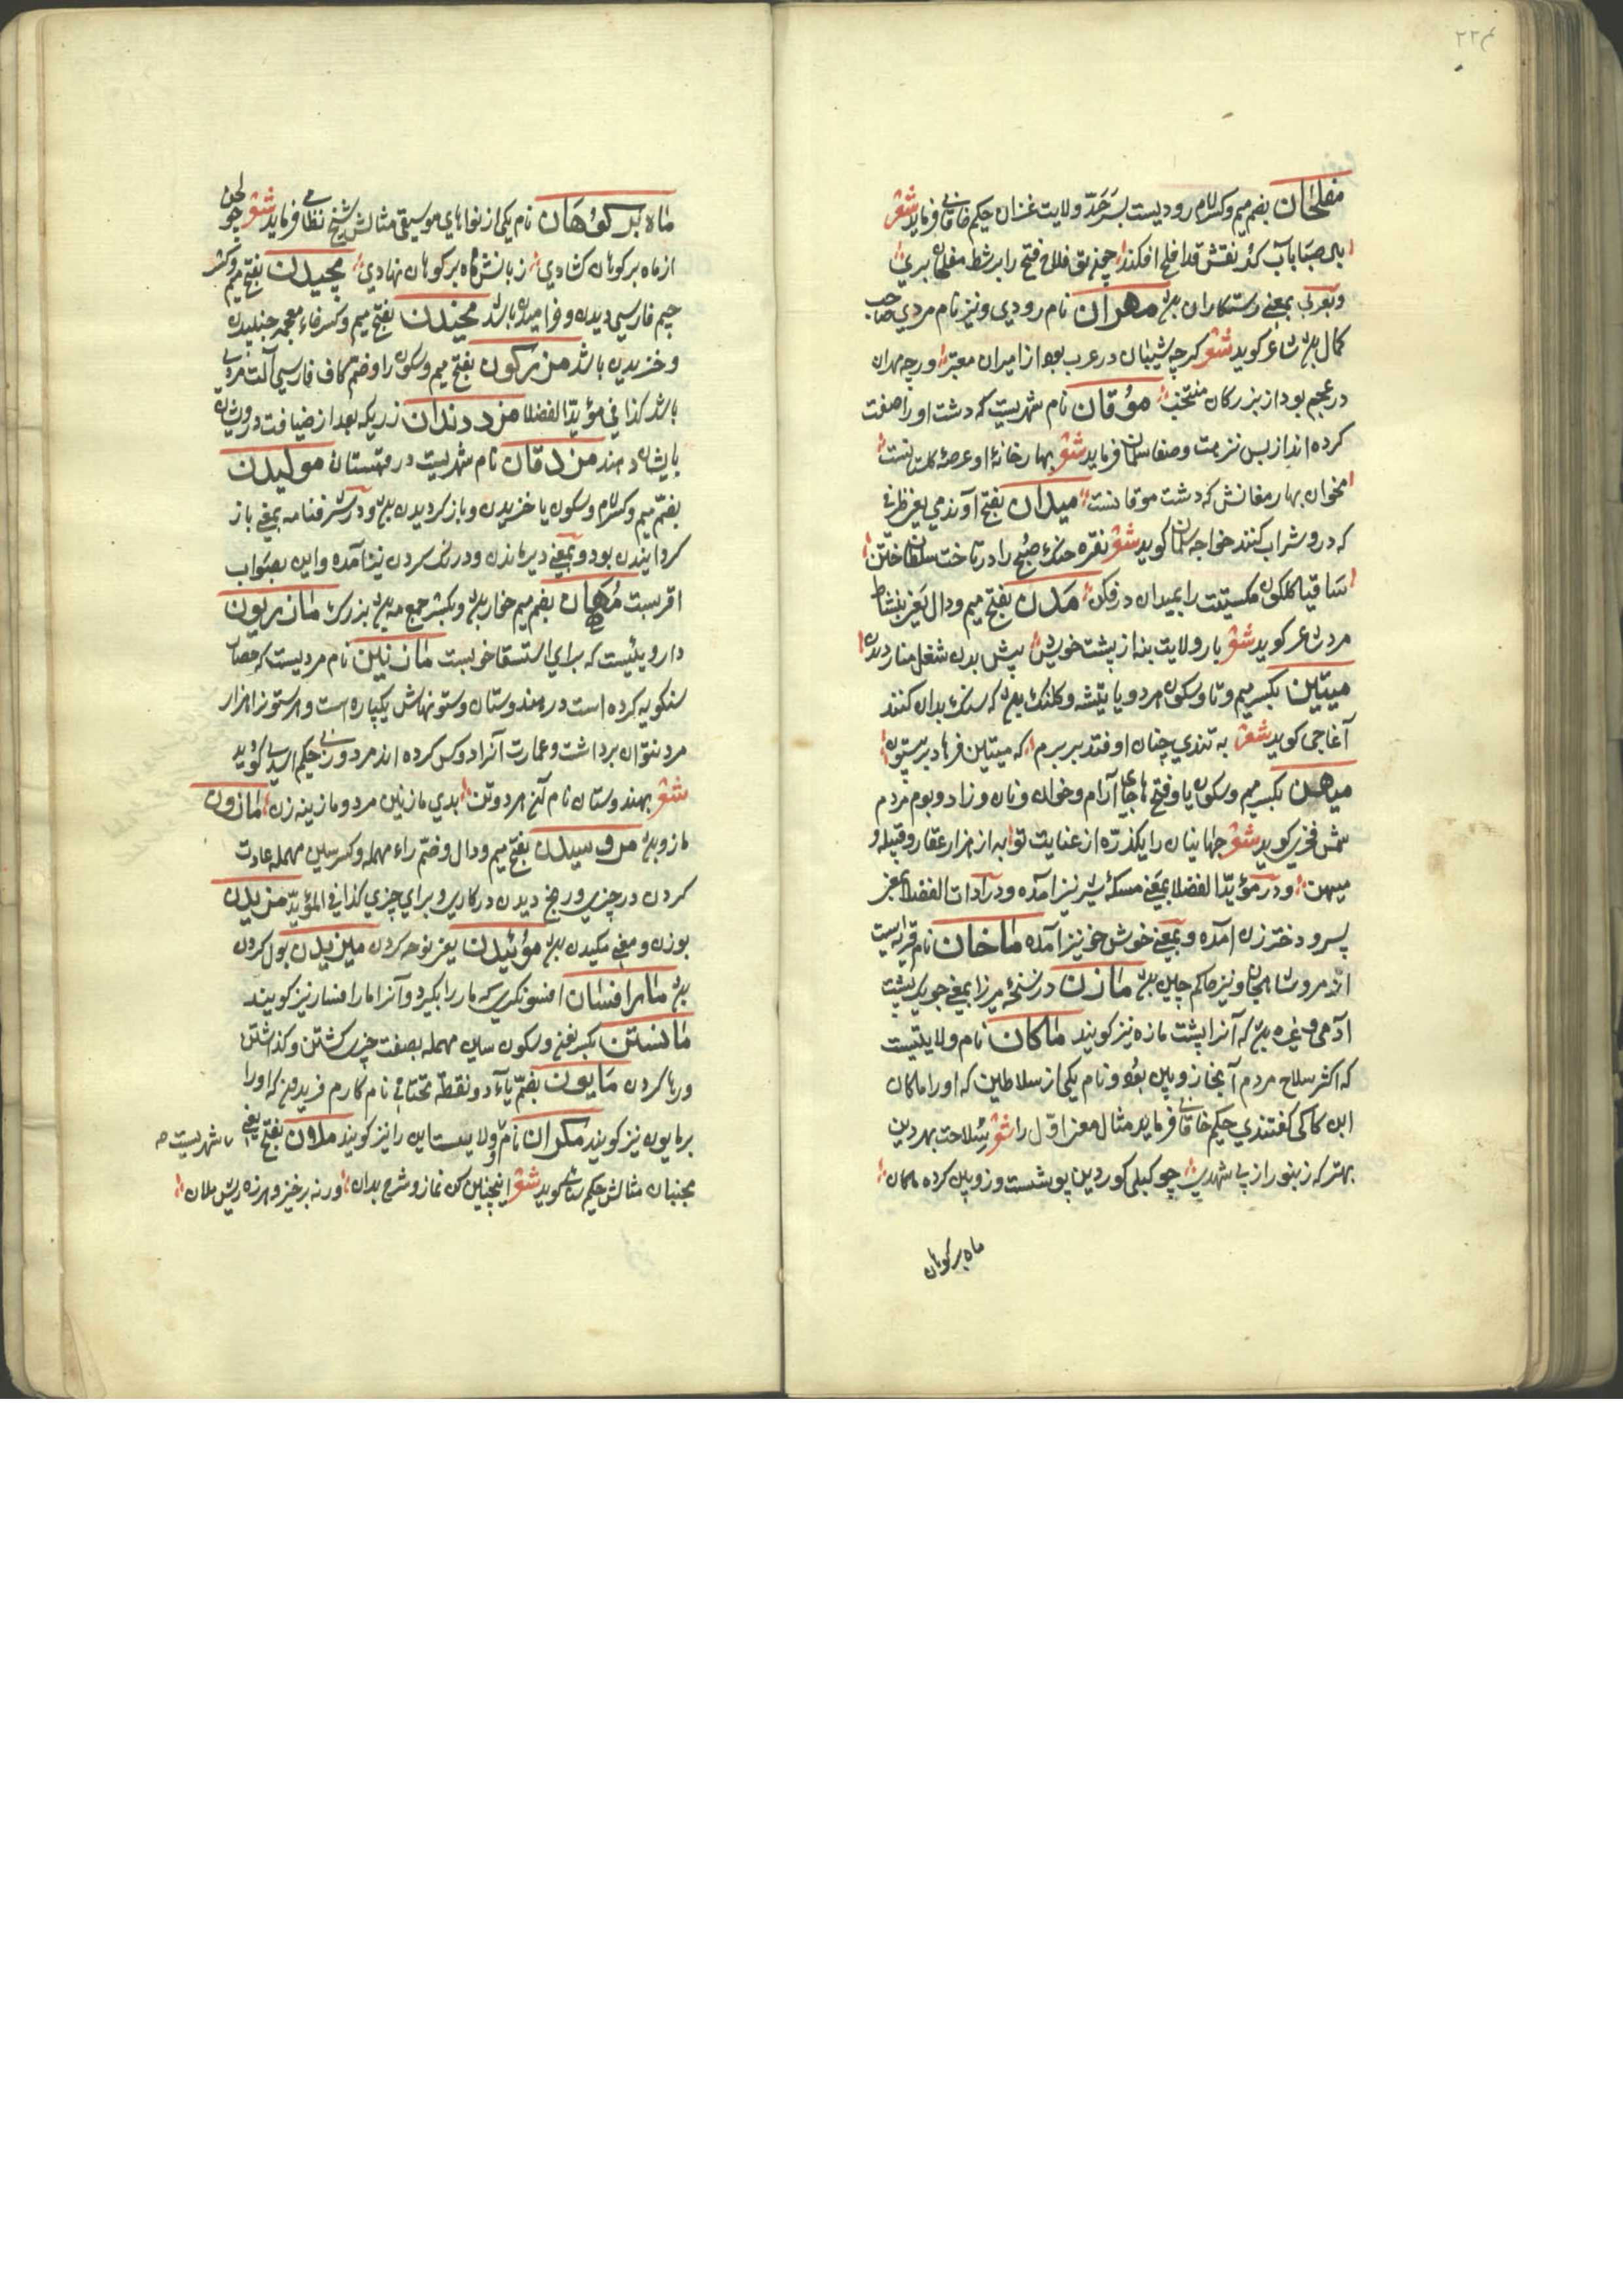 مفلحان بضم میم وکسر لام رودیست بسرحد ولایت غزان حکیم خاقانی فرماید شعر
بلی صبا بآب کند نقش قد افلح افکند همچنین بق فلاح فتح را بر شط مفلحان بری
وبعربی بمعنی رستکاران بود مهران نام رودی ونیز نام مردی صاحب
کمال بود شاعر کوید شعر کرچه شیبان در عرب بود از امیران معتبر ورچه مهران
در عجم بود از بزرکان منتخب موقان نام شهریست که دشت اورا صفت
کرده اند از بس نزهت وصفا سلمان فرماید شعر بهار خانهٔ او عرصهٔ کلستانست
مخوان بهار مغانش که دشت موقانست میدان بفتح آوند می یعنی ظرفی
که درو شراب کنند خواجه سلمان کوید شعر نقره خنک صبح را در تاخت سلطان ختن
ساقیا کلکون مکسیتت را بمیدان در فکن مدن بفتح میم ودال یعنی بنشاط
مردن شاعر کوید شعر بار ولایت بنه از پشت خویش پیش بدن شغل منازو مدن
میتین بکسر میم وتا وسکون هردو یا تیشه وکلنک بود که سنک بدان کنند
آغاجی کوید شعر به تندی چنان اوفتد بر برم که میتین فرهاد بر بیستون
میهن بکسر میم وسکون یا وفتح ها جای آرام وخوان ونان وزاد وبوم مردم
شمس فخری کوید شعر جهانیان را یکذره از عنایت تو به از هزار عقار وقبیله و
میهن ودر مؤید الفضلا بمعنی مسکهٔ شیر نیز آمده ودر آدات الفضلا بمعنی
پسر ودختر زن آمده وبمعنی خوش خو نیز آمده ماخان نام قریه ایست
از مرو شاهجان ونیز حاکم چین بود مازن در نسخهٔ میرزا بمعنی جوی پشت
آدمی وغیره بود که آنرا پشت مازه نیز کویند ماکان نام ولایتیست
که اکثر سلاح مردم آنجا زوبین بود ونام یکی از سلاطین که اورا ماکان
ابن کاکی کفتندی حکیم خاقانی فرماید مثال معنی اول را شعر سلاحت بهر دین
بهتر که زنبور از پی شهدی چو کیلی کور دین پوشست وزوبین کرده ماکان
ماه بر کوهان
ماه بر کوهان نام یکی از نواهای موسیقی مثالش شیخ نظامی فرماید شعر چو لحن
از ماه بر کوهان کشادی زبانش ماه بر کوهان نهادی مچیدن بفتح میم وکسر
جیم فارسی دیدن وخرامیدن باشد مخیدن بفتح میم وکسر خاء معجمه جنبیدن
وخزیدن باشد مزرکون بفتح میم وسکون را وضم کاف فارسی آلت مردی
باشد کذا فی مؤید الفضلا مزد دندان زریکه بعد از ضیافت درویشان
بایشان دهند مزدقان نام شهریست در قهستان مولیدن
بضم میم وکسر لام وسکون یا خزیدن وباز کردیدن بود ودر شرفنامه بمعنی باز
کردانیدن بود وبمعنی دیر ماندن ودرنک کردن نیز آمده واین بصواب
اقربست مهکان بضم میم خار بود وبکسر جمع مه بود بزرک مازریون
دارویئیست که برای استسقا خوبست مازنین نام مردیست که حصار
سنکویه کرده است در هندوستان وستونهاش یکپاره است وهر ستون را هزار
مرد نتوان برداشت وعمارت آنرا دو کس کرده اند مرد وزنی حکیم اسدی کوید
شعر بهندوستان نام آن هردوتن بدی مازنین مرد ومازینه زن مازون
مازو بود مروسیدن بفتح میم ودال وضم راء مهمله وکسر سین مهمله عادت
کردن در چیزی ورنج دیدن در کاری وبرای چیزی کذا فی المؤید مزیدن
بوزن ومعنی مکیدن بود موئیدن یعنی نوحه کردن میزیدن بول کردن
بود مارافسان افسونکری که مار را بکیرد وآنرا مارافسار نیز کویند
مانستن بکسر نون وسکون سین مهمله بصفت چیزی کشتن وکذاشتن
ورها کردن مایون بضم یآء دو نقطه تحتانی نام کاو مر فریدون که اورا
برمایون نیز کویند مکران نام ولایتست این را نیز کویند ملان بفتح یعنی
مجنبان مثالش حکیم سنائی کوید شعر اینچنین کن نماز وشرح بدان ورنه برخیز وهرزه ریش ملان